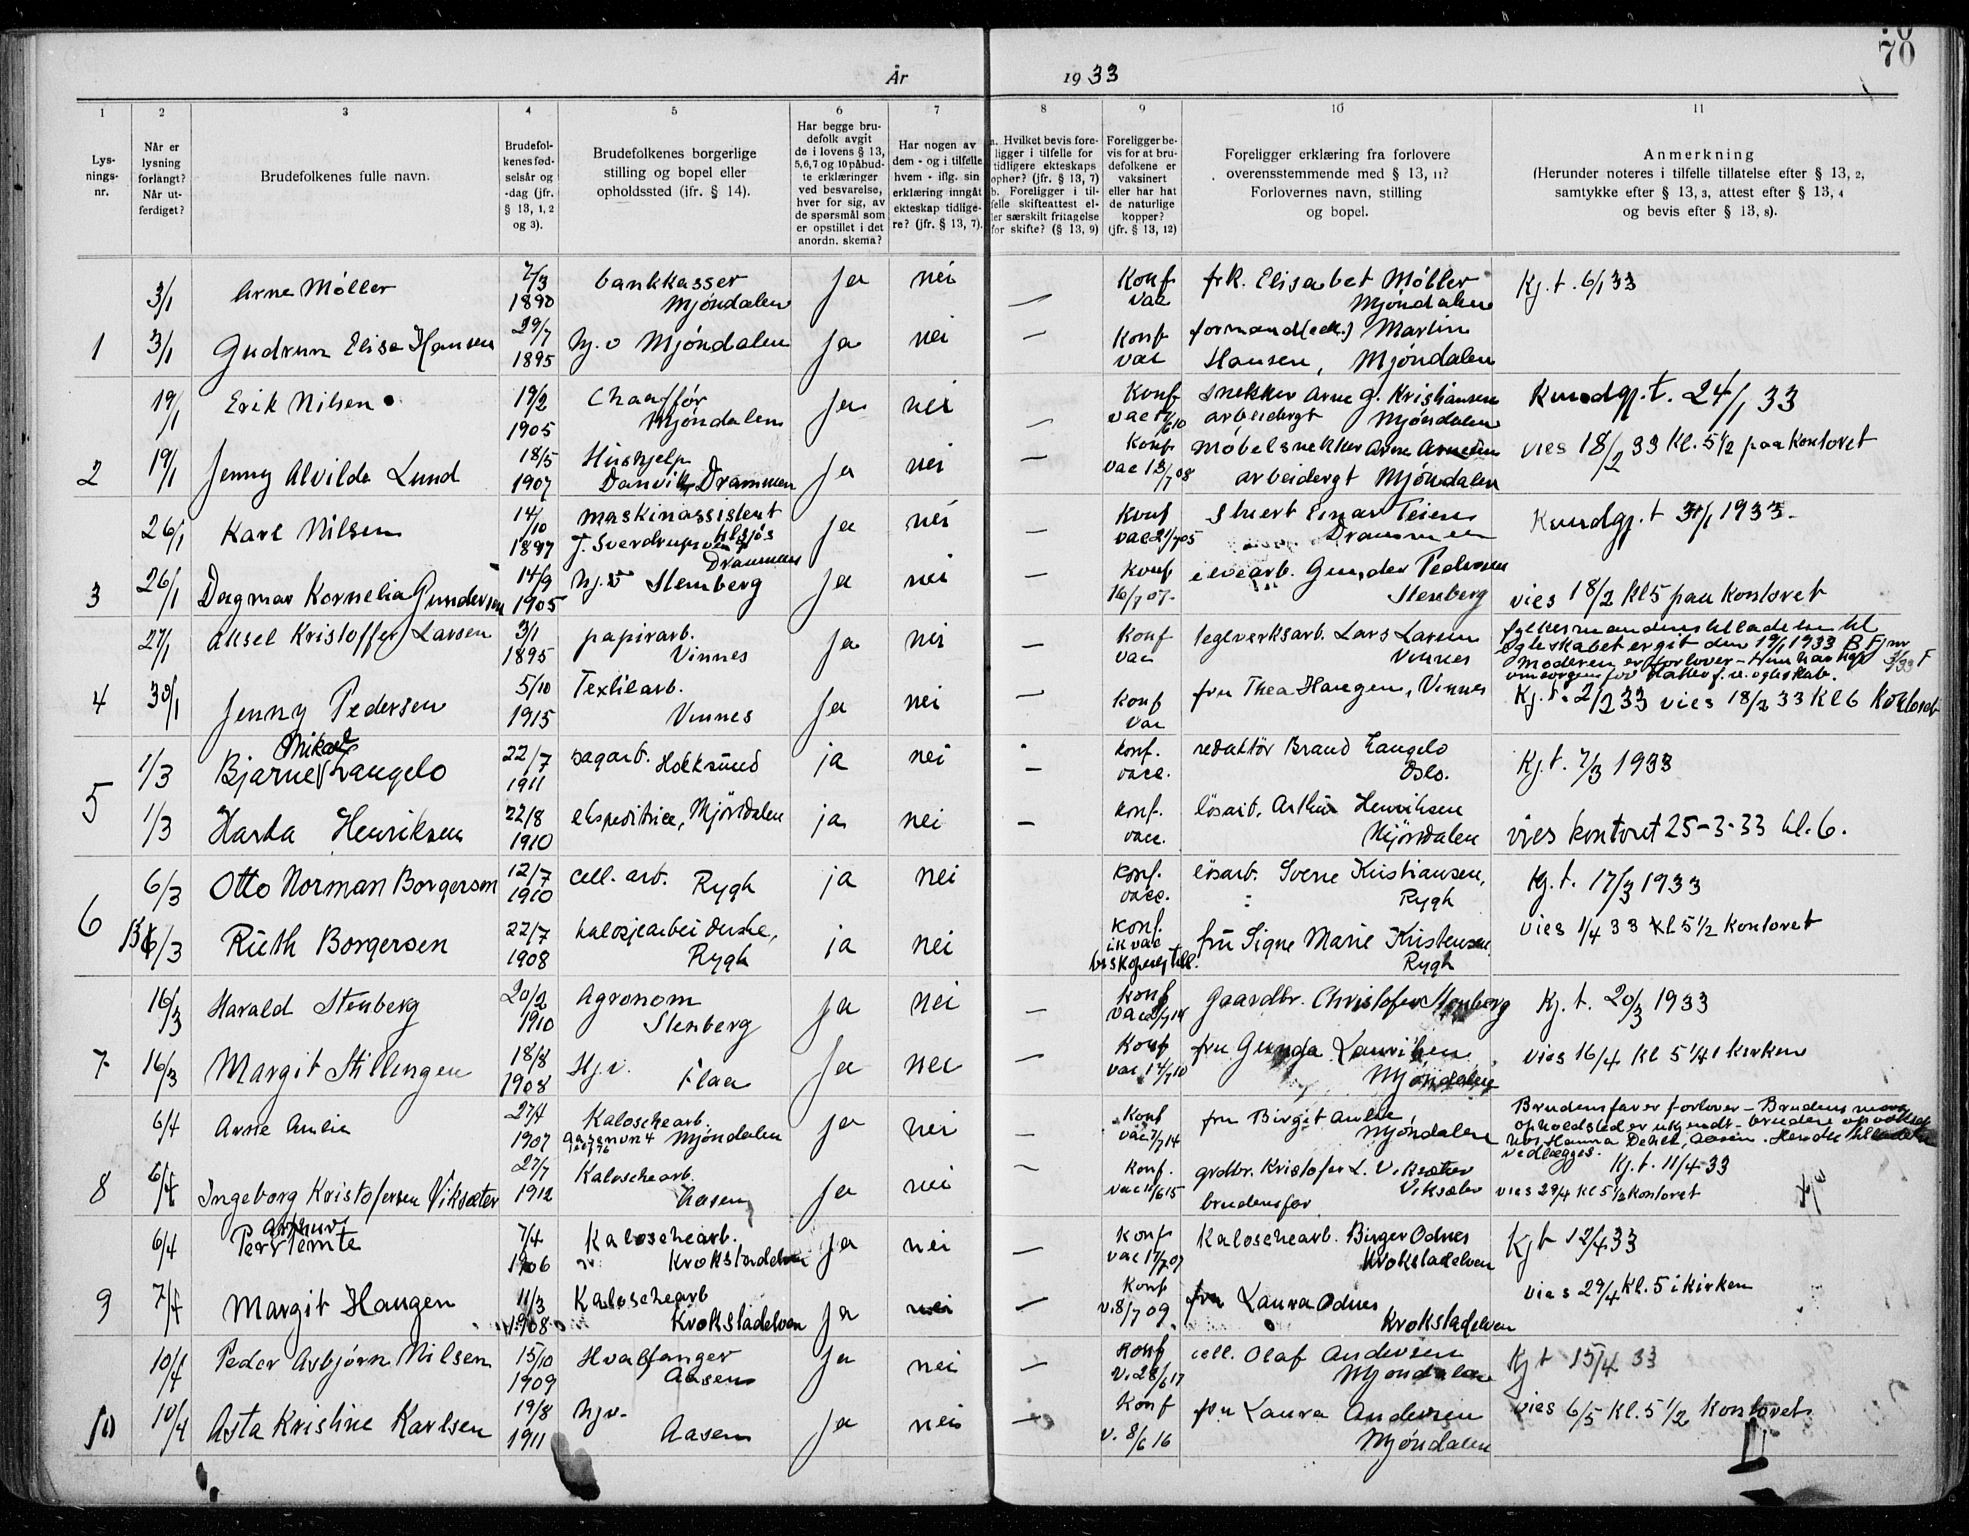 70
År 1933
1 2 3 4 5 6 7 8 9 10 11
Lysningsnr.
Når er lysning forlangt? Når utferdiget?
Brudefolkenes fulle navn.
Brudefolkenes fødselsår og -dag (jfr. § 13, 1, 2 og 3).
Brudefolkenes borgerlige stilling og bopel eller opholdssted (jfr. § 14).
Har begge brudefolk avgit de i lovens § 13, 5, 6, 7 og 10 påbudte erklæringer ved besvarelse, hver for sig, av de spørsmål som er opstillet i det anordn. skema?
Har nogen av dem - og i tilfelle hvem - iflg. sin erklæring inngåt ekteskap tidligere? (jfr. § 13, 7).
a. Hvilket bevis foreligger i tilfelle for tidligere ekteskaps ophør? (jfr. § 13, 7) b. Foreligger i tilfelle skifteattest eller særskilt fritagelse for skifte? (§ 13, 9)
Foreligger bevis for at brudefolkene er vaksinert eller har hat de naturlige kopper? (jfr. § 13, 12)
Foreligger erklæring fra forlovere overensstemmende med § 13, 11? Forlovernes navn, stilling og bopel.
Anmerkning (Herunder noteres i tilfelle tillatelse efter § 13, 2, samtykke efter § 13, 3, attest efter § 13, 4 og bevis efter § 13, 8).
3/1 Arne Møller 7/3 1890 bankkasser Mjøndalen Ja nei — Konf vac frk. Elisabet Møller Mjøndalen Kj. t. 6/1 33
1 3/1 Gudrun Elise Hansen 29/7 1895 hj. v Mjøndalen Ja nei — Konf vac formand (cell.) Martin Hansen, Mjøndalen
19/1 Erik Nilsen 19/2 1905 Chauffør Mjøndalen Ja nei — Konf vac snekker Arne G. Kristiansen arbeidergt Mjøndalen Kundgj. t. 24/1 33
2 19/1 Jenny Alvilde Lund 18/5 1907 Hushjelp Danvik, Drammen Ja nei — Konf vac 13/7 08 Møbelsnekker Arne arbeidergt Mjøndalen vies 18/2 33 kl. 5 1/2 paa kontoret
26/1 Karl Nilsen 14/10 1897 maskinassistent J. Sverdrupsvei Drammen Ja nei — Konf vac 21/7 05 Einar Teien Drammen Kundgj. t 31/1 1933.
3 26/1 Dagmar Kornelia Gundersen 14/9 1905 hj. v Stenberg Ja nei — Konf 16/7 07. Gunder Pedersen Stenberg vies 18/2 kl 5 paa kontoret
27/1 Aksel Kristoffer Larsen 3/1 1895 papirarb. Vinnes Ja nei — Konf vac teglverksarb. Lars Larsen Vinnes fylkesmandens tilladelse til egteskabet er git den 19/1 1933 Moderen er forlover – Hun har hat omsorgen for datter f. u. egteskab.
4 30/1 Jenny Pedersen 5/10 1915 Textilarb. Vinnes Ja nei — Konf vac fru Thea Haugen, Vinnes Kj. t. 2/2 33 vies 18/2 33 kl 6 kontoret
5 1/3 Bjarne Mikael Langelo 22/7 1911 sagarb. Hokksund ja nei — konf. vacc. redaktør Brand Langelo Oslo. Kj. t. 7/3 1933
1/3 Harda Henriksen 22/8 1910 ekspeditrice, Mjøndalen ja nei — konf. vacc. løsarb. Arthur Henriksen Mjøndalen vies kontoret 25-3-33 kl. 6.
6 6/3 Otto Norman Borgersen 12/7 1910 cell. arb. Rygh ja nei konf. vacc. løsarb. Sverre Kristiansen, Rygh Kj. t. 17/3 1933
6/3 Ruth Borgersen 22/7 1908 kalosjearbeiderske, Rygh ja nei konf. ik vac biskopelig till. fru Signe Marie Kristensen Rygh vies 1/4 33 kl 5 1/2 kontoret
16/3 Harald Stenberg 20/2 1910 Agronom Stenberg Ja nei — Konf Gaardbr. Christofer Stenberg Kj. t. 20/3 1933
7 16/3 Margit Stillingen 18/8 1908 Hj. v. Flaa Ja nei — Konf vac 14/7 10 fru Gunda Lauritzen Mjøndalen vies 16/4 kl 5 1/4 i kirken
6/4 Arne 27/4 1907 Kaloschearb. Mjøndalen Ja nei — Konf vac 7/7 14 fru Birgit Mjøndalen Brudens far er forlover – Brudens mors opholdsted er ukjendt – bruden opvokset hos Hanna Aasen – Hendes tilladelse vedlægges.
8 6/4 Ingeborg Kristofersen Viksæter 27/7 1912 Kaloschearb. Aasen Ja nei — Konf. vac 11/6 15 grdbr. Kristofer L. Viksæter Viksæter brudens far Kj. t. 11/4 33 vies 29/4 kl 5 1/2 kontoret
6/4 Per Arthur Temte 7/4 1906 Kaloschearb. Krokstadelven Ja nei — Konf vac 17/7 07 Kaloschearb. Birger Odnes Krokstadelven Kj t 12/4 33
9 7/4 Margit Haugen 11/3 1908 Kaloschearb Krokstadelven Ja nei — Konf v. 8/7 09 fru Laura Odnes Krokstadelven vies 29/4 kl. 5 i kirken
10/4 Peder Asbjørn Nilsen 15/10 1909 Hvalfanger Aasen Ja nei — Konf v. 28/6 17 cell. Olaf Andersen Mjøndalen Kj t 15/4 33
10 10/4 Asta Kristine Karlsen 19/8 1911 hj v. Aasen Ja nei — Konf v. 8/6 16 fru Laura Andersen Mjøndalen vies 6/5 kl. 5 1/2 kontoret